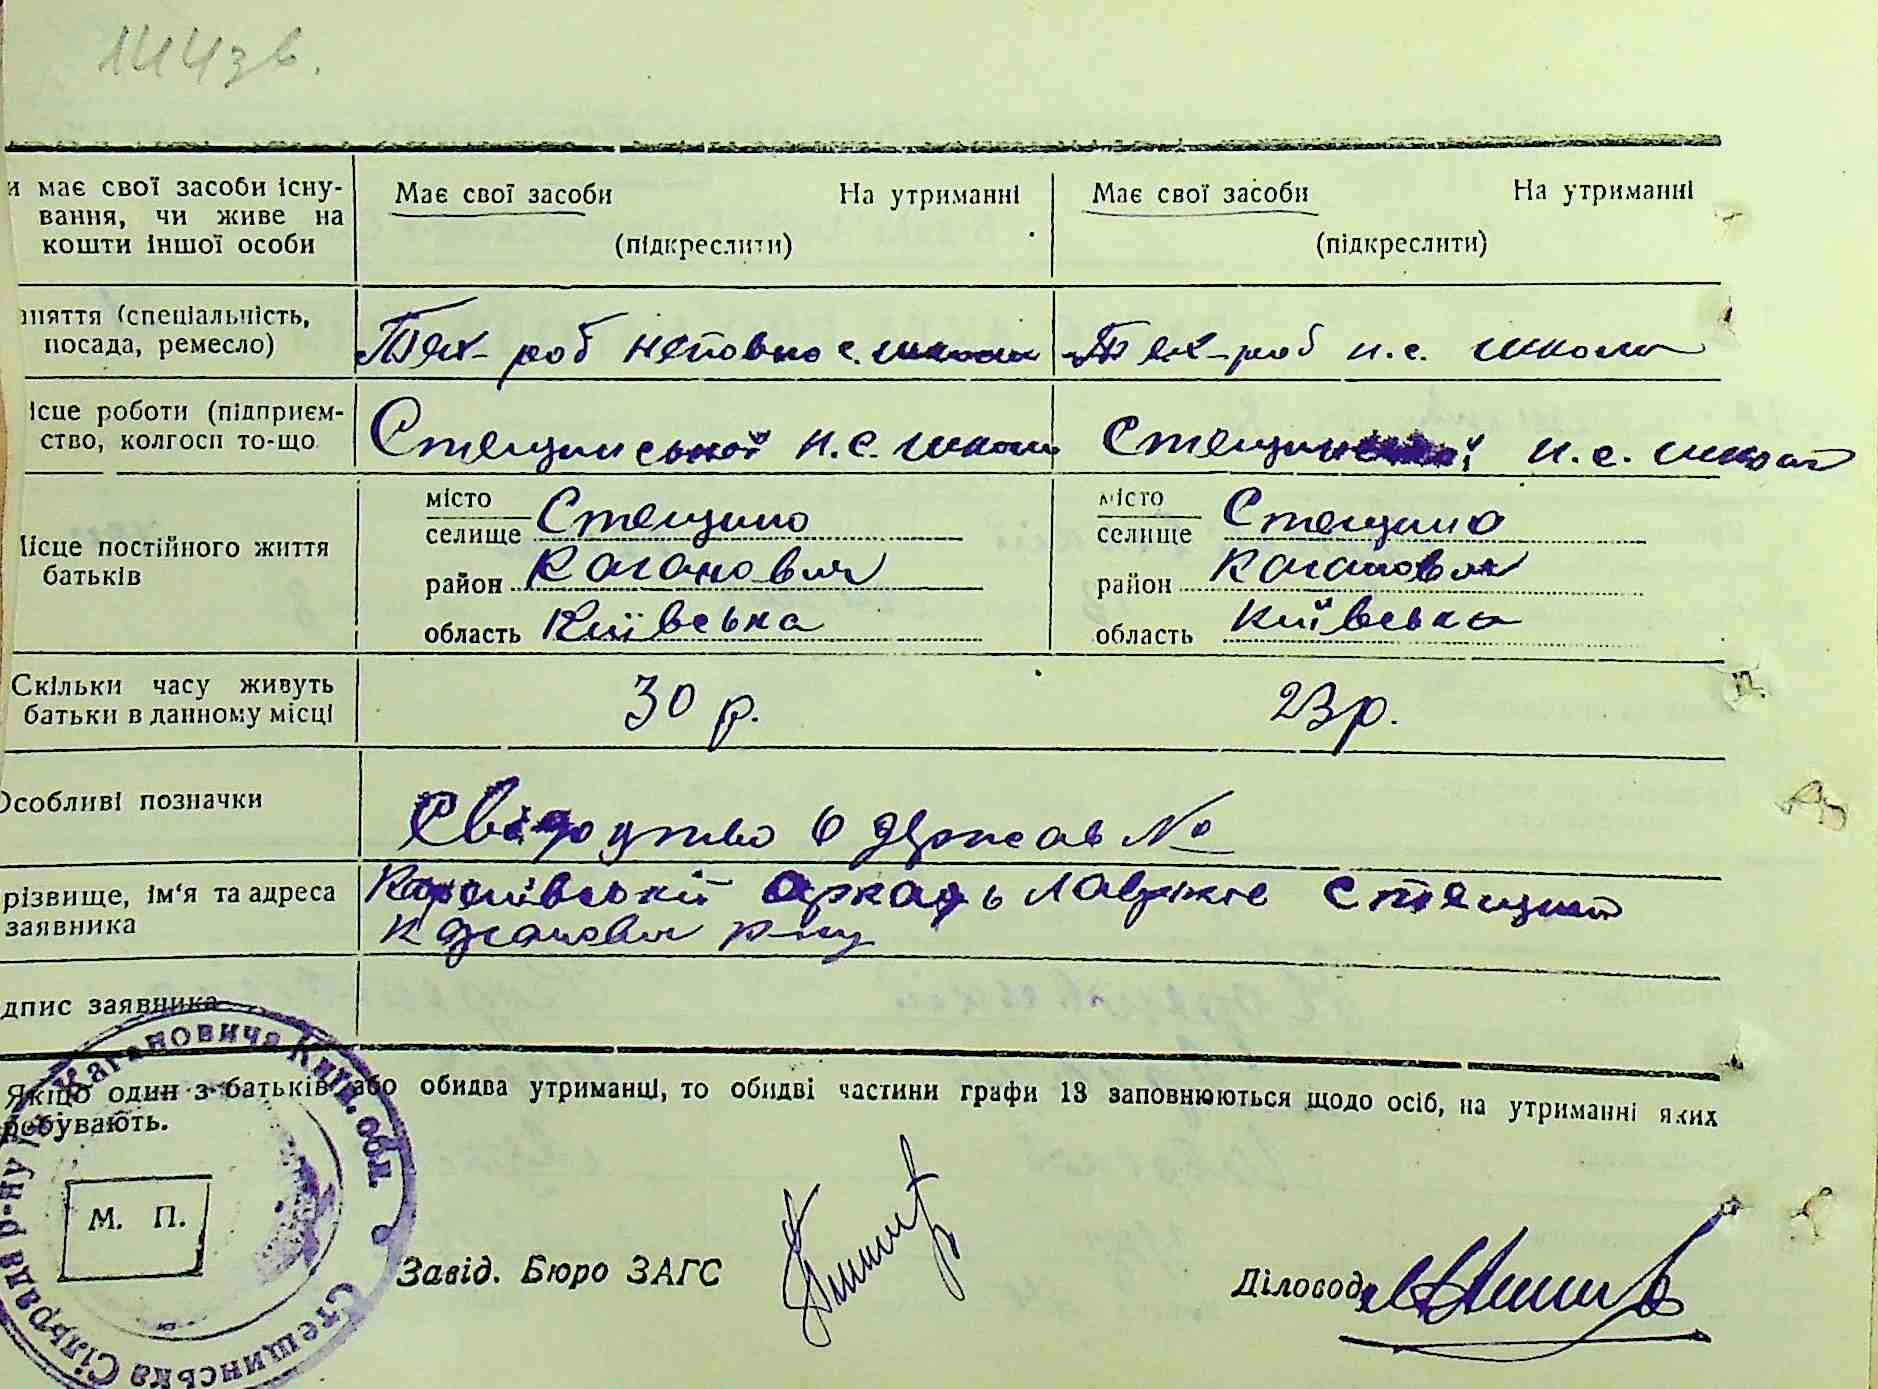 144зв.
и має свої засоби існу-
вання, чи живе на
кошти іншої особи
Має свої засоби На утриманні
(підкреслити)
Має свої засоби На утриманні
(підкреслити)
няття (спеціальність,
посада, ремесло)
Тех-роб неповно с. школи
Тех-роб н.с. школи
ісце роботи (підприєм-
ство, колгосп то-що
Стещинської н.с. школи
Стещинської н.с. школи
ісце постійного життя
батьків
місто
селище Стещино
район Каганович
область Київська
місто
селище Стещино
район Каганович
область Київська
Скільки часу живуть
батьки в данному місці
30 р.
23 р.
Особливі позначки
Свідоцтво о держав №
різвище, ім‘я та адреса
заявника
аркадь Стещино
Каганович р-ну
дпис заявника
Якщо один з батьків або обидва утриманці, то обидві частини графи 13 заповнюються щодо осіб, на утриманні яких
ребувають.
Стещинська Сільрада р-ну Кагановича Київ. обл.
М. П.
Завід. Бюро ЗАГС
Діловод